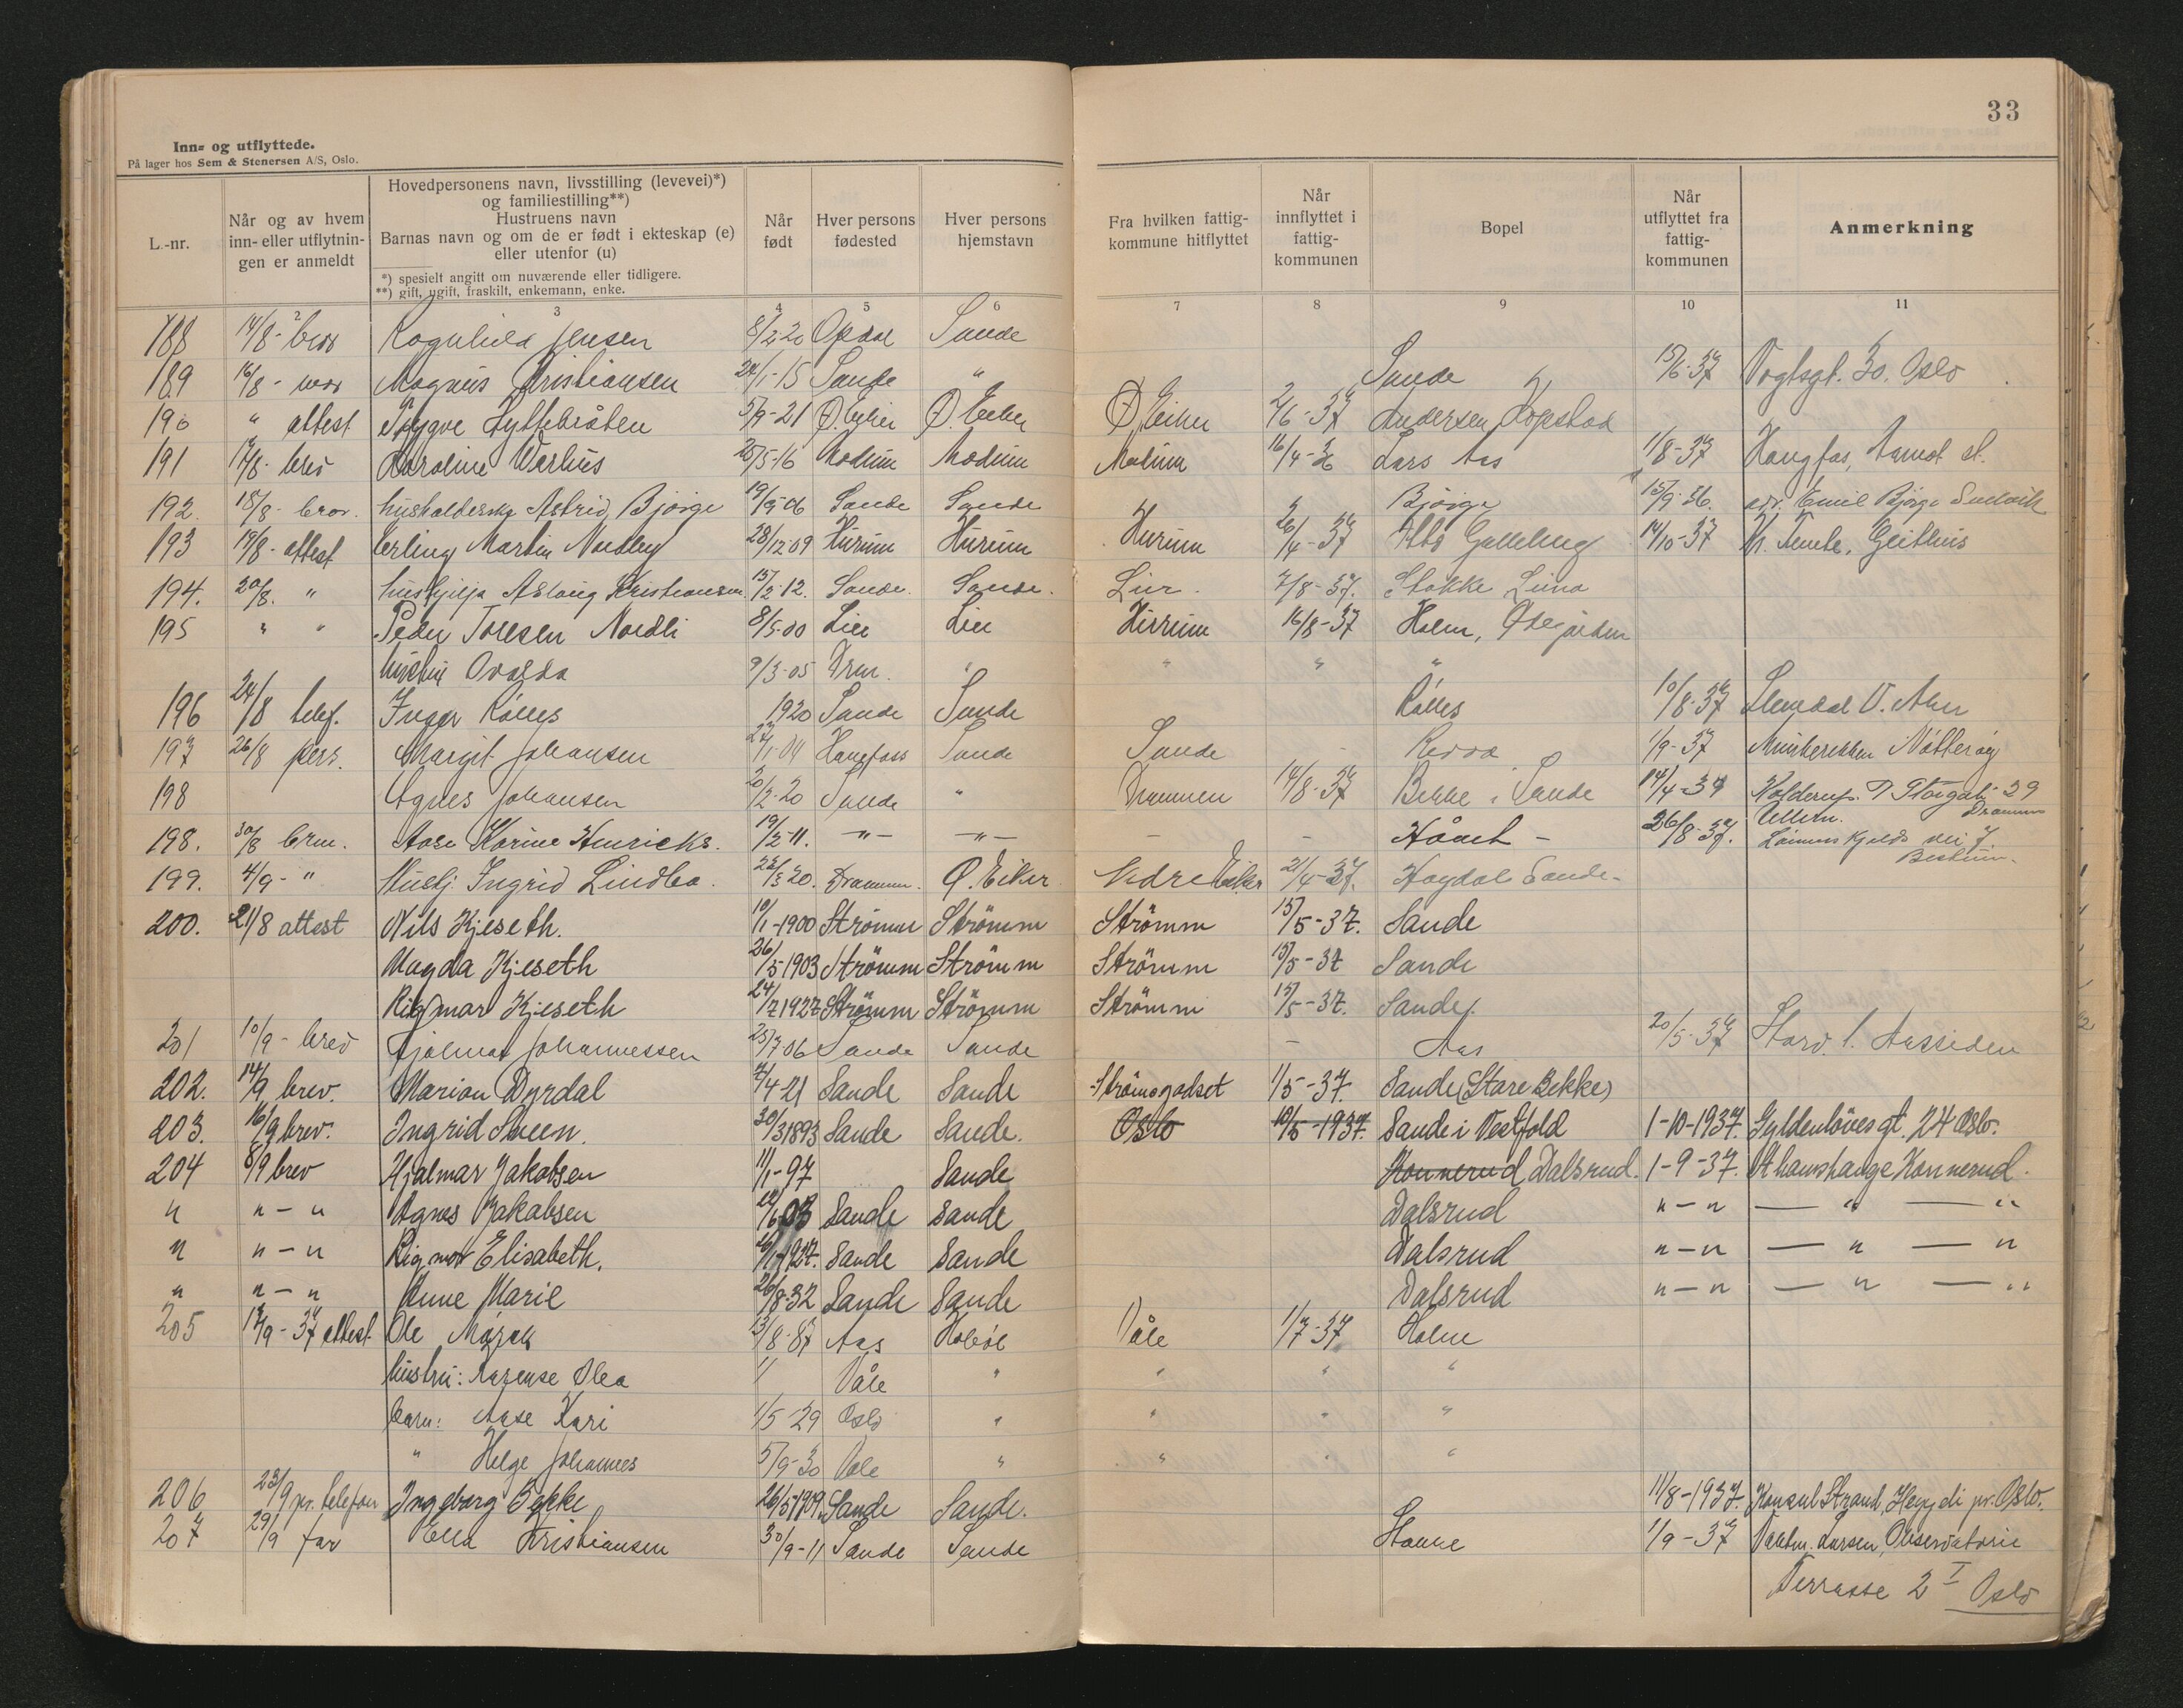 33
Inn- og utflyttede.
På lager hos Sem & Stenersen A/S, Oslo.
L.-nr.
Når og av hvem inn- eller utflytningen er anmeldt
Hovedpersonens navn, livsstilling (levevei)*)
og familiestilling**)
Hustruens navn
Barnas navn og om de er født i ekteskap (e)
eller utenfor (u)
*) spesielt angitt om nuværende eller tidligere.
**) gift, ugift, fraskilt, enkemann, enke.
Når født
Hver persons fødested
Hver persons hjemstavn
Fra hvilken fattigkommune hitflyttet
Når innflyttet i fattigkommunen
Bopel
Når utflyttet fra fattigkommunen
Anmerkning
2 3 4 5 6 7 8 9 10 11
188 14/8- Ragnhild Jensen 8/2-20 Opdal Sande
189 16/8 - mor Magnus Kristiansen 24/1-15 Sande " Sande 15/6-37 Vogtsgt. 30. Oslo
190 " attest Trygve Hyttebråten 5/9-21 Ø. Eiker Ø. Eiker Ø Eiker 2/6-37 Andersen Kopstad
191 17/8- brev Karoline Varhus 25/5-16 Modum Modum Modum 16/4-36 Lars Aas 11/8-37 Aamot st.
192. 18/8- bror. husholderske Astrid Bjørge 19/9-06 Sande Sande Bjørge 15/9-36. adr. Emil Bjørge Selvik
193 19/8- attest Erling Martin Nordby 28/12-09 Hurum Hurum Hurum 26/4-37 Galleberg 14/10-37 Geithus
194. 20/8. " hushjelp Aslaug Kristiansen 15/2-12. Sande. Sande. Lier. 7/8-37. Stokke Lina
195 " " Peder Toresen Nordli 8/5-00 Lier Lier Hurum 16/8-37 Holm, Øde gården
hustru Ovalda 9/3-05 Drm. " " " "
196 24/8 telef. Inger Rølles 1920 Sande Sande Rølles 10/8-37 Slemdal V. Aker
197 26/8 pers. Margit Johansen 27/1-04 Hanefoss Sande Sande - Revaa 1/9-37 Munkerekken Nøtterøy
198 Agnes Johansen 20/2-20 Sande " Drammen 14/8-37 Bekke i Sande 14/4-39 Kolderup. Storgat. 29 Drammen
198. 30/8 brev. Aase Karine Henriks. 19/2-11. —"— —"— — — Håmet - 26/8-37. Ullern. vei 7 Bestum.
199. 4/9- " Hushj. Ingrid Lindbo. 22/3 20. Drammen. Ø. Eiker Nedre Eiker 21/4-37. Haydal Sande-
200. 21/8 attest Nils Kjeseth. 10/1-1900 Strömm Strömm Strömm 15/5-37. Sande
Magda Kjeseth 26/5 1903 Strömm Strömm Strömm 15/5-37 Sande
Rigmor Kjeseth 24/7 1927 Strömm Strömm Strömm 15/5-37. Sande.
201 10/9- brev Hjalmar Johannessen 25/7-06 Sande Sande — Aas 20/5-37 Aassiden
202. 14/9 brev. Marion Dyrdal 7/4-21 Sande Sande Strömsgodset 1/5-37. Sande (Stare Bekke)
203. 16/9 brev. Ingrid Sveen. 30/3 1893 Sande Sande. Oslo 10/5-1937. Sande i Vestfold 1-10-1937. Gyldenlöves gt. 24 Oslo.
204 8/9 brev Hjalmar Jakobsen 11/1-97 Sande Konnerud Dalsrud. 1-9-37. St hanshauge Konnerud.
" " - " Agnes Jakobsen 03 Sande Sande Dalsrud " - " — " — "
" " - " Rigmor Elisabeth. 1927. Sande Sande Dalsrud " - " — " — "
" " - " Anne Marie 26/8-32 Sande Sande Dalsrud " - " — " — "
205 17/9-37 attest Ole Mørch 13/8-87 Aas Hobøl Våle 1/7-37 Holm
hustru: Karense Olea // Våle " " " "
barn: Aase Kari 1/5-29 Oslo " " " "
" Helge Johannes 5/9-30 Våle " " " "
206 23/9 pr. telefon Ingeborg Bekke 26/5 1909. Sande Sande. 11/8-1937. Konsul Strand, pr. Oslo.
207 29/9 far Ella Kristiansen 30/9-11 Sande Sande Hanne 1/9-37 Larsen, Observatorie
Terrasse 2 I Oslo